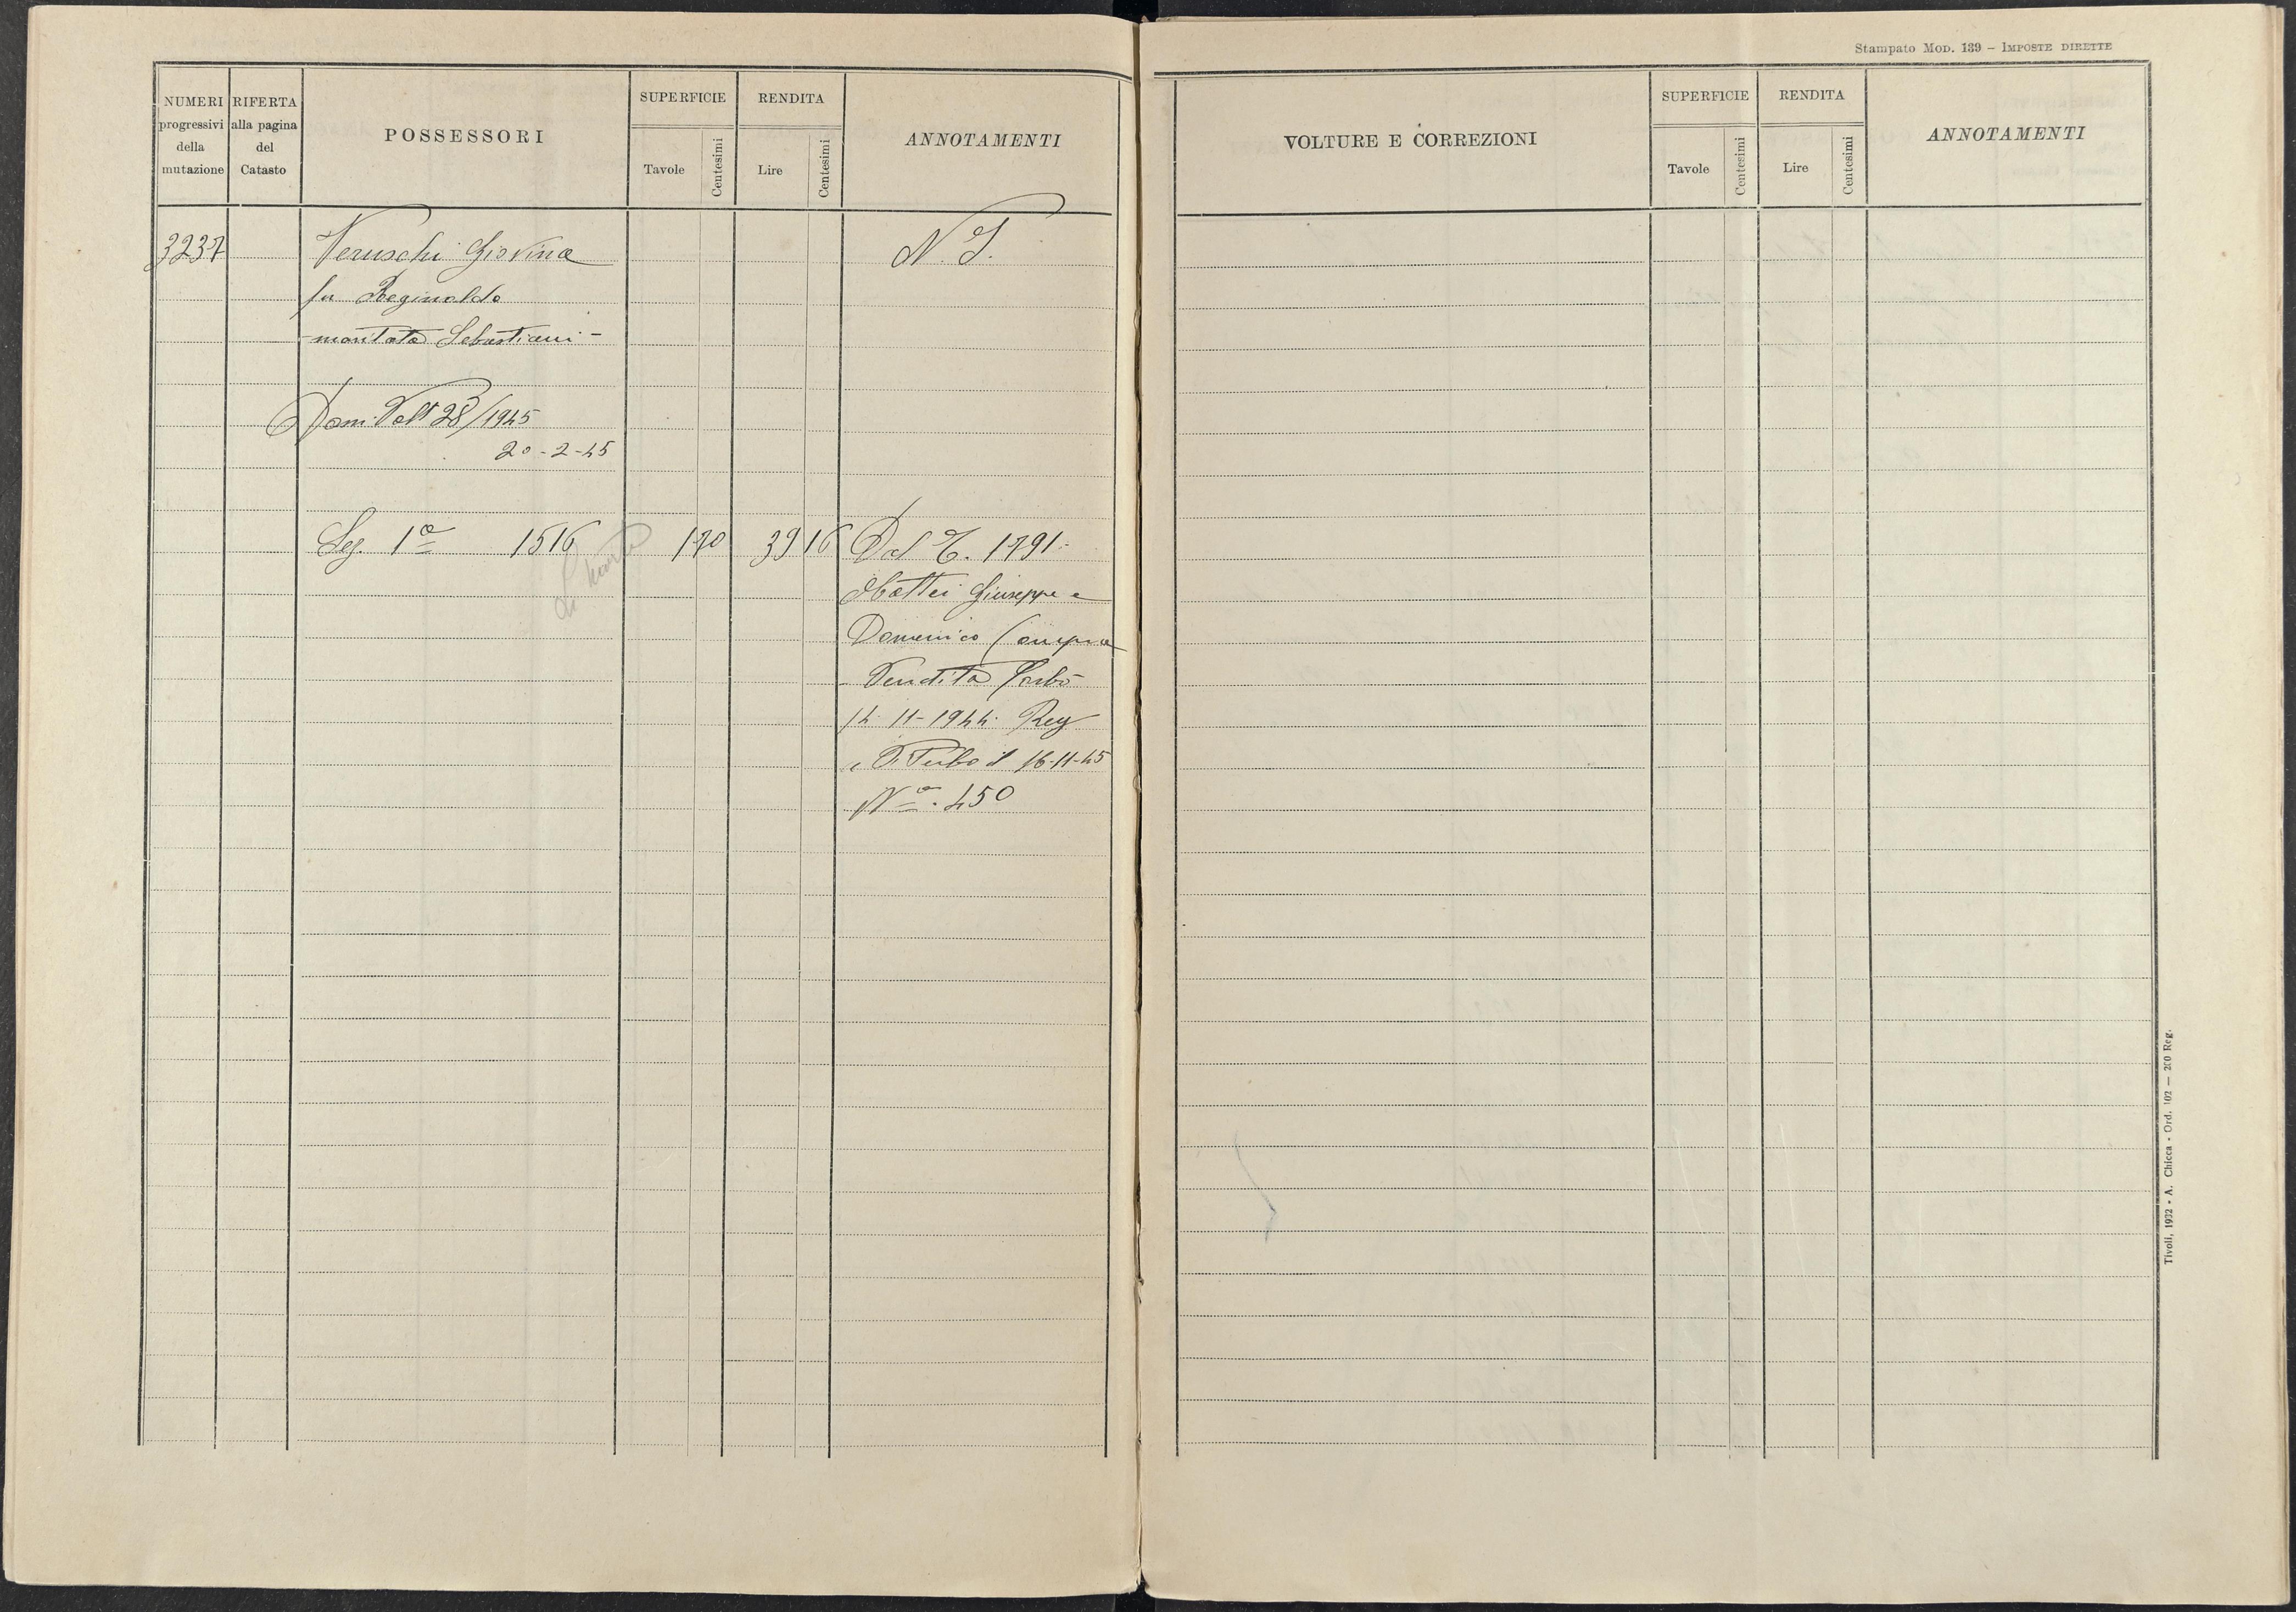 Stampato Mod. 139 – Imposte dirette
NUMERI progressivi della mutazione
RIFERTA alla pagina del Catasto
POSSESSORI
SUPERFICIE
Tavole
Centesimi
RENDITA
Lire
Centesimi
ANNOTAMENTI
3237
Veruschi Giovina
fu Reginaldo
maritata Sebastiani -
N. T.
Dom. Volt 28/1945
20-2-45
Sez. 1ª 1516 1 70 39 16 Dal T. 1791-
Mattei Giuseppe e
Domenico Compra
Vendita
14-11-1944. Reg
Viterbo il 16-11-45
Nº. 450
VOLTURE E CORREZIONI
SUPERFICIE
Tavole
Centesimi
RENDITA
Lire
Centesimi
ANNOTAMENTI
Tivoli, 1932 - A. Chicca - Ord. 102 — 200 Reg.